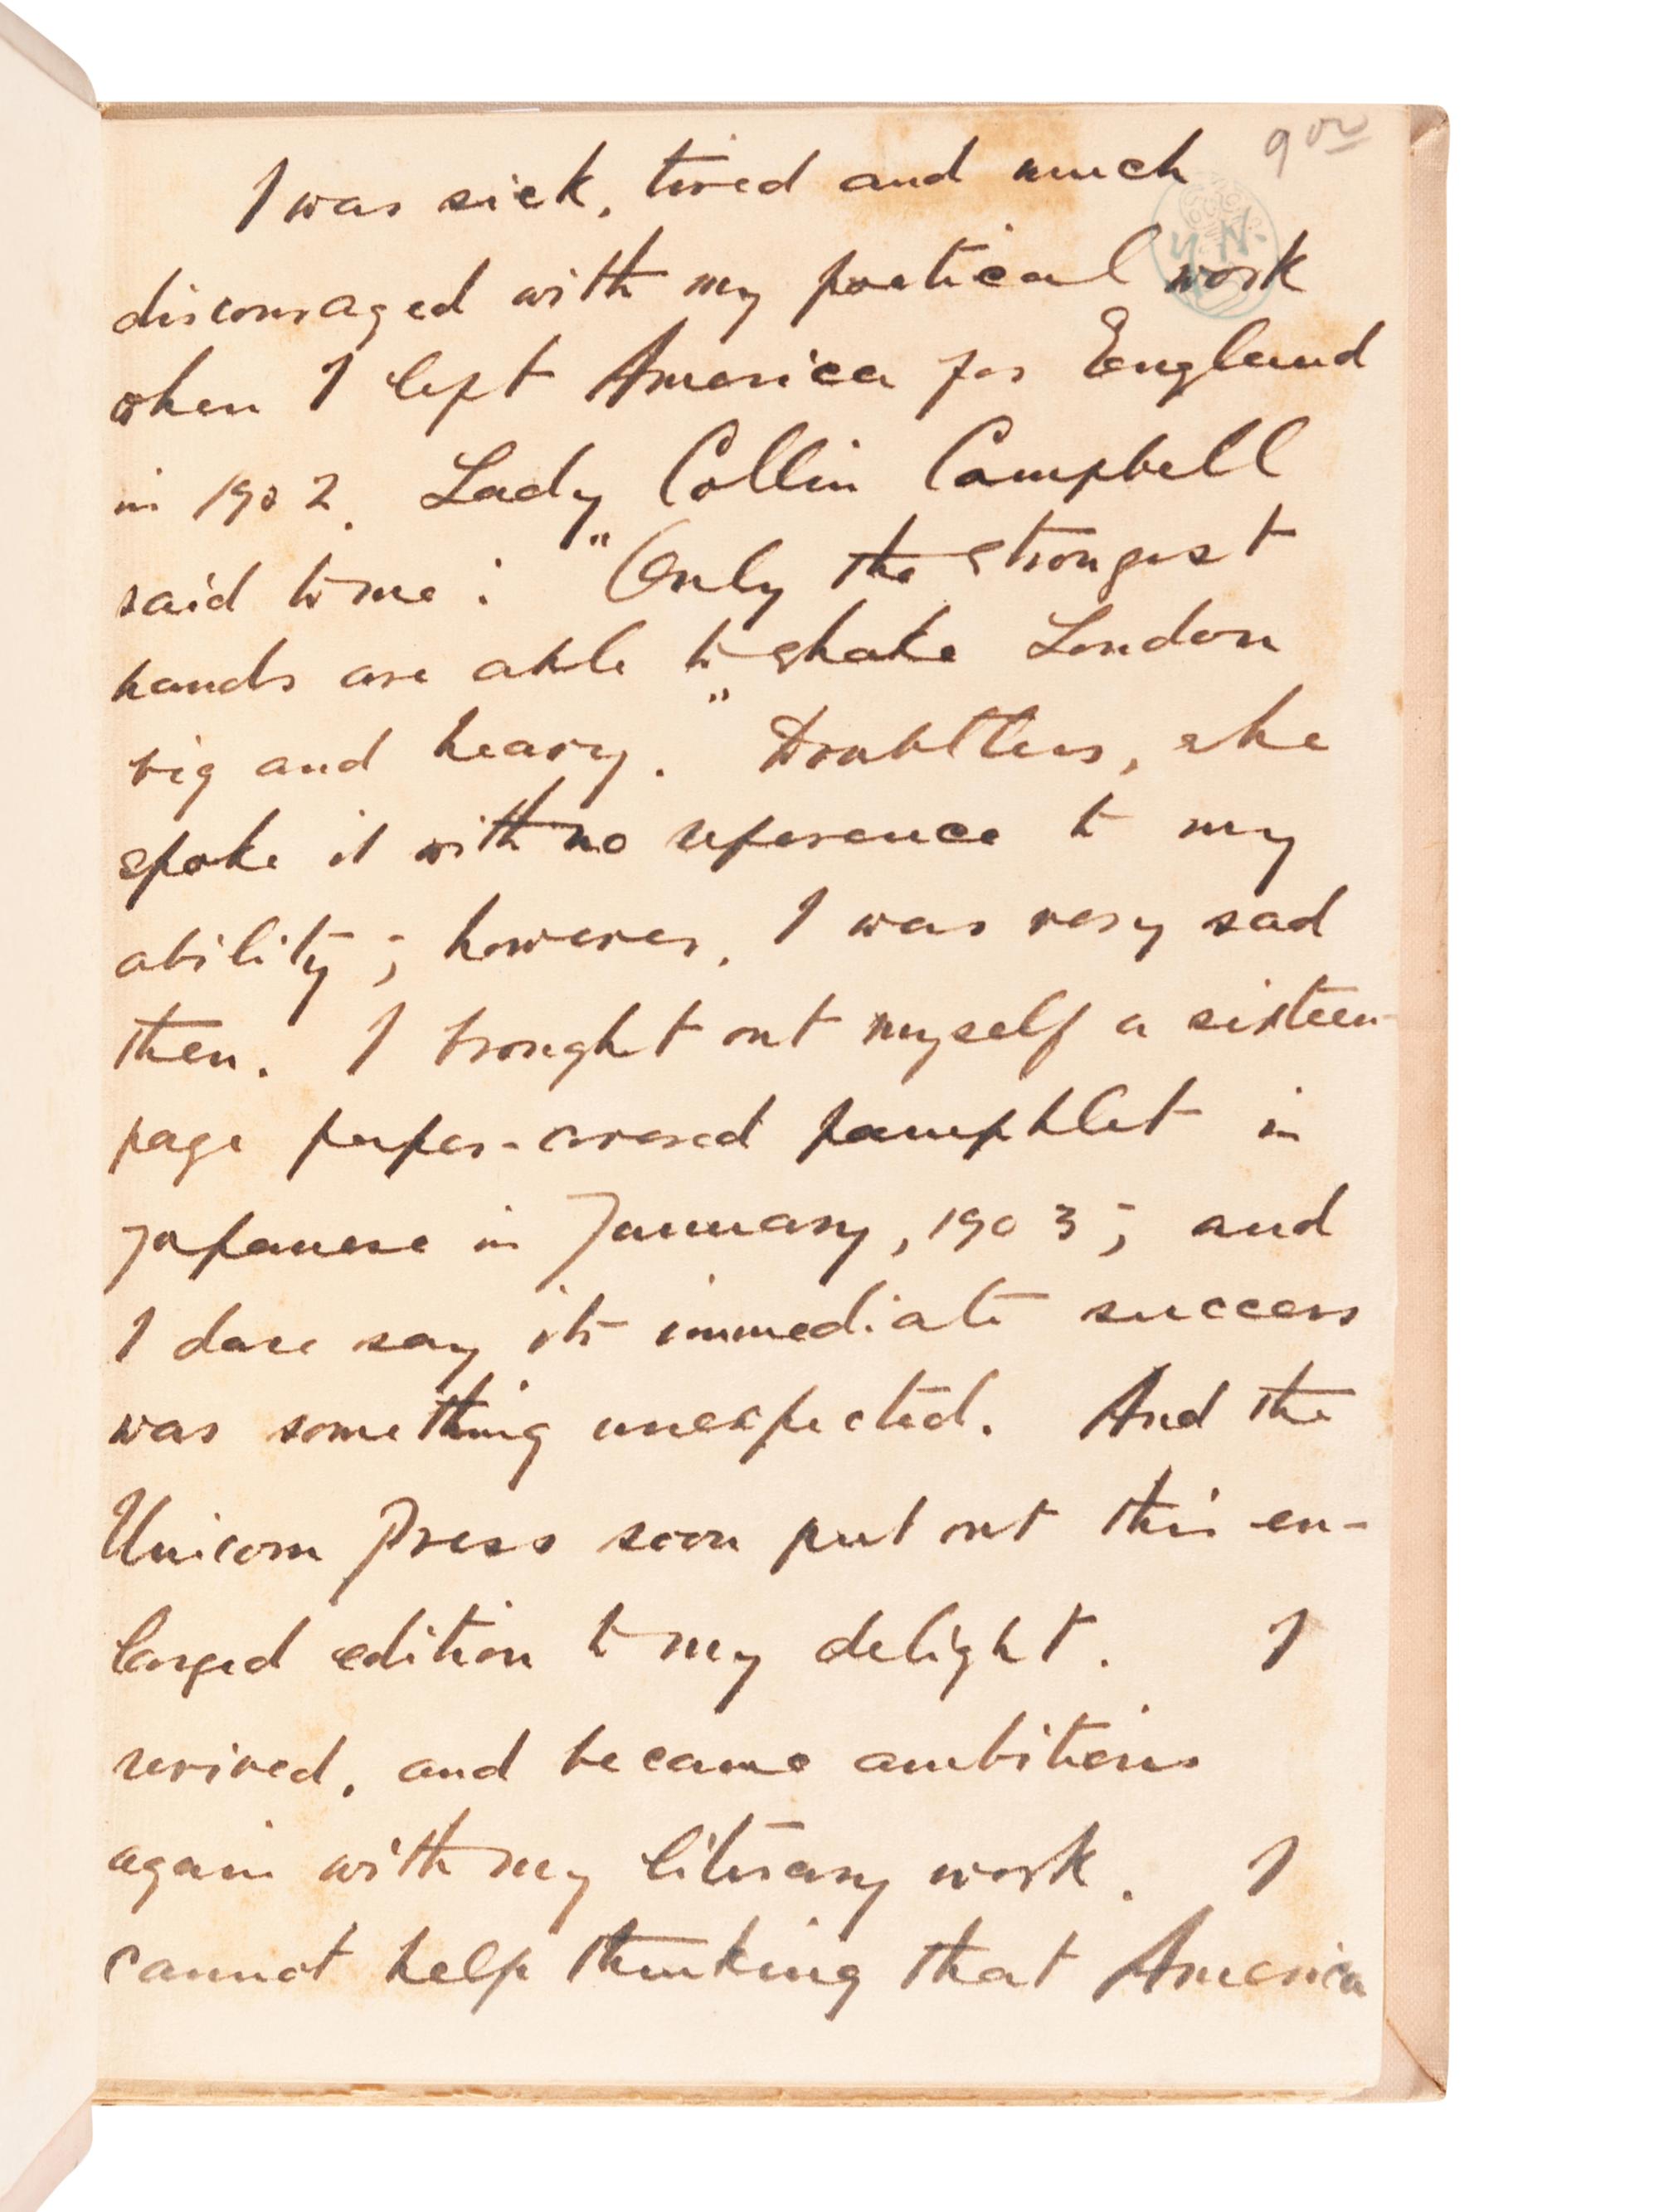 9 00
I was sick, tired and much
Y. N.
discouraged with my poetical work
when I left America for England
in 1902. Lady Collin Campbell
said to me: "Only the strongest
hands are able to shake London
big and heavy." Doubtless, she
spoke it with no reference to my
ability; however, I was very sad
then. I brought out myself a sixteen-
page paper-covered pamphlet in
Japanese in January, 1903; and
I dare say its immediate success
was something unexpected. And the
Unicorn Press soon put out this en-
larged edition to my delight. I
revived, and became ambitious
again with my literary work. I
cannot help thinking that America